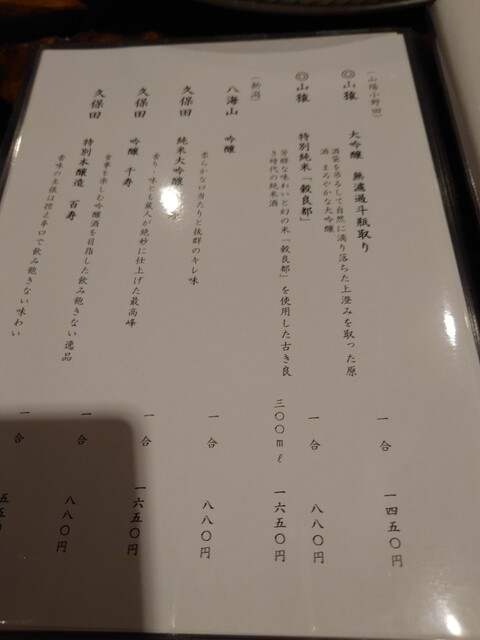 (山陽小野田)
◎山猿 大吟醸 無濾過斗瓶取り 一合 一四五〇円
酒袋を吊るして自然に滴り落ちた上澄みを取った原
酒 まろやかな大吟醸
◎山猿 特別純米「穀良都」 一合 八八〇円
芳醇な味わいと幻の米「穀良都」を使用した古き良
き時代の純米酒 三〇〇ml 一六五〇円
(新潟)
八海山 吟醸 一合 八八〇円
柔らかな口当たりと抜群のキレ味
久保田 純米大吟醸 一合 一六五〇円
香り・味とも蔵人が絶妙に仕上げた最高峰
久保田 吟醸 千寿 一合 八八〇円
食事を楽しむ吟醸酒を目指した飲み飽きない逸品
久保田 特別本醸造 百寿 一合 五五〇
香味の主張は控え辛口で飲み飽きない味わい